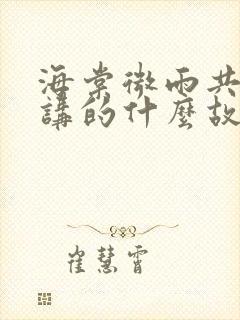 海棠微雨共
講的什麼故
崔慧霄